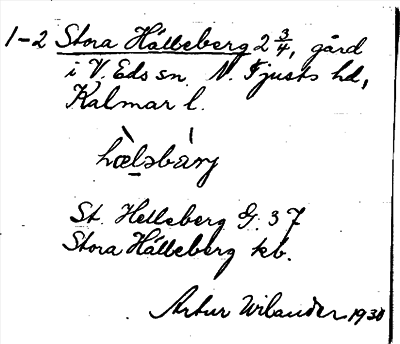 1-2 Stora Hälleberg 2 3/4, gård
i V. Eds sn N. Tjusts hd,
Kalmar l.
St. Helleberg G. 37
Stora Hälleberg kb.
Artur Wilander 1930